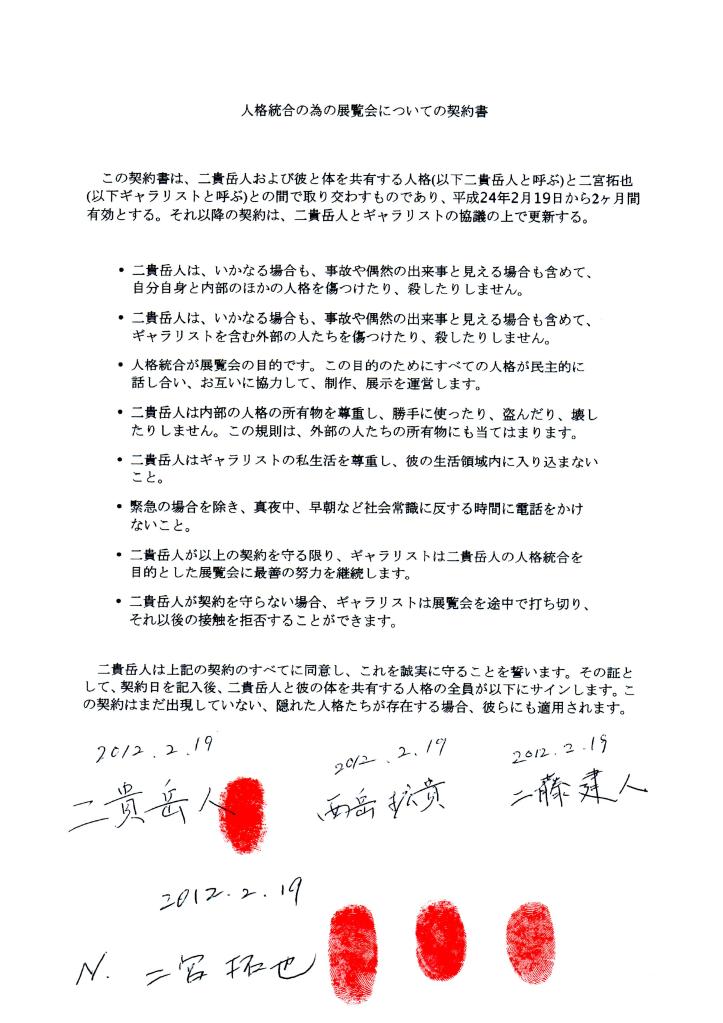 人格統合の為の展覧会についての契約書
この契約書は、二貴岳人および彼と体を共有する人格(以下二貴岳人と呼ぶ)と二宮拓也
(以下ギャラリストと呼ぶ)との間で取り交わすものであり、平成24年2月19日から2ヶ月間
有効とする。それ以降の契約は、二貴岳人とギャラリストの協議の上で更新する。
• 二貴岳人は、いかなる場合も、事故や偶然の出来事と見える場合も含めて、
自分自身と内部のほかの人格を傷つけたり、殺したりしません。
• 二貴岳人は、いかなる場合も、事故や偶然の出来事と見える場合も含めて、
ギャラリストを含む外部の人たちを傷つけたり、殺したりしません。
• 人格統合が展覧会の目的です。この目的のためにすべての人格が民主的に
話し合い、お互いに協力して、制作、展示を運営します。
• 二貴岳人は内部の人格の所有物を尊重し、勝手に使ったり、盗んだり、壊し
たりしません。この規則は、外部の人たちの所有物にも当てはまります。
• 二貴岳人はギャラリストの私生活を尊重し、彼の生活領域内に入り込まない
こと。
• 緊急の場合を除き、真夜中、早朝など社会常識に反する時間に電話をかけ
ないこと。
• 二貴岳人が以上の契約を守る限り、ギャラリストは二貴岳人の人格統合を
目的とした展覧会に最善の努力を継続します。
• 二貴岳人が契約を守らない場合、ギャラリストは展覧会を途中で打ち切り、
それ以後の接触を拒否することができます。
二貴岳人は上記の契約のすべてに同意し、これを誠実に守ることを誓います。その証と
して、契約日を記入後、二貴岳人と彼の体を共有する人格の全員が以下にサインします。こ
の契約はまだ出現していない、隠れた人格たちが存在する場合、彼らにも適用されます。
2012.2.19 2012.2.19 2012.2.19
二貴岳人 西岳拡貴 二藤建人
2012.2.19
N. 二宮拓也